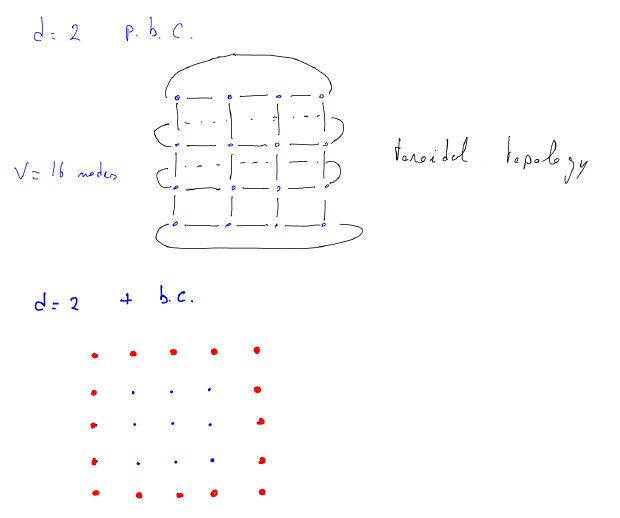 d= 2 p. b. c.
V= 16 nodes
toroidal topology
d= 2 + b.c.